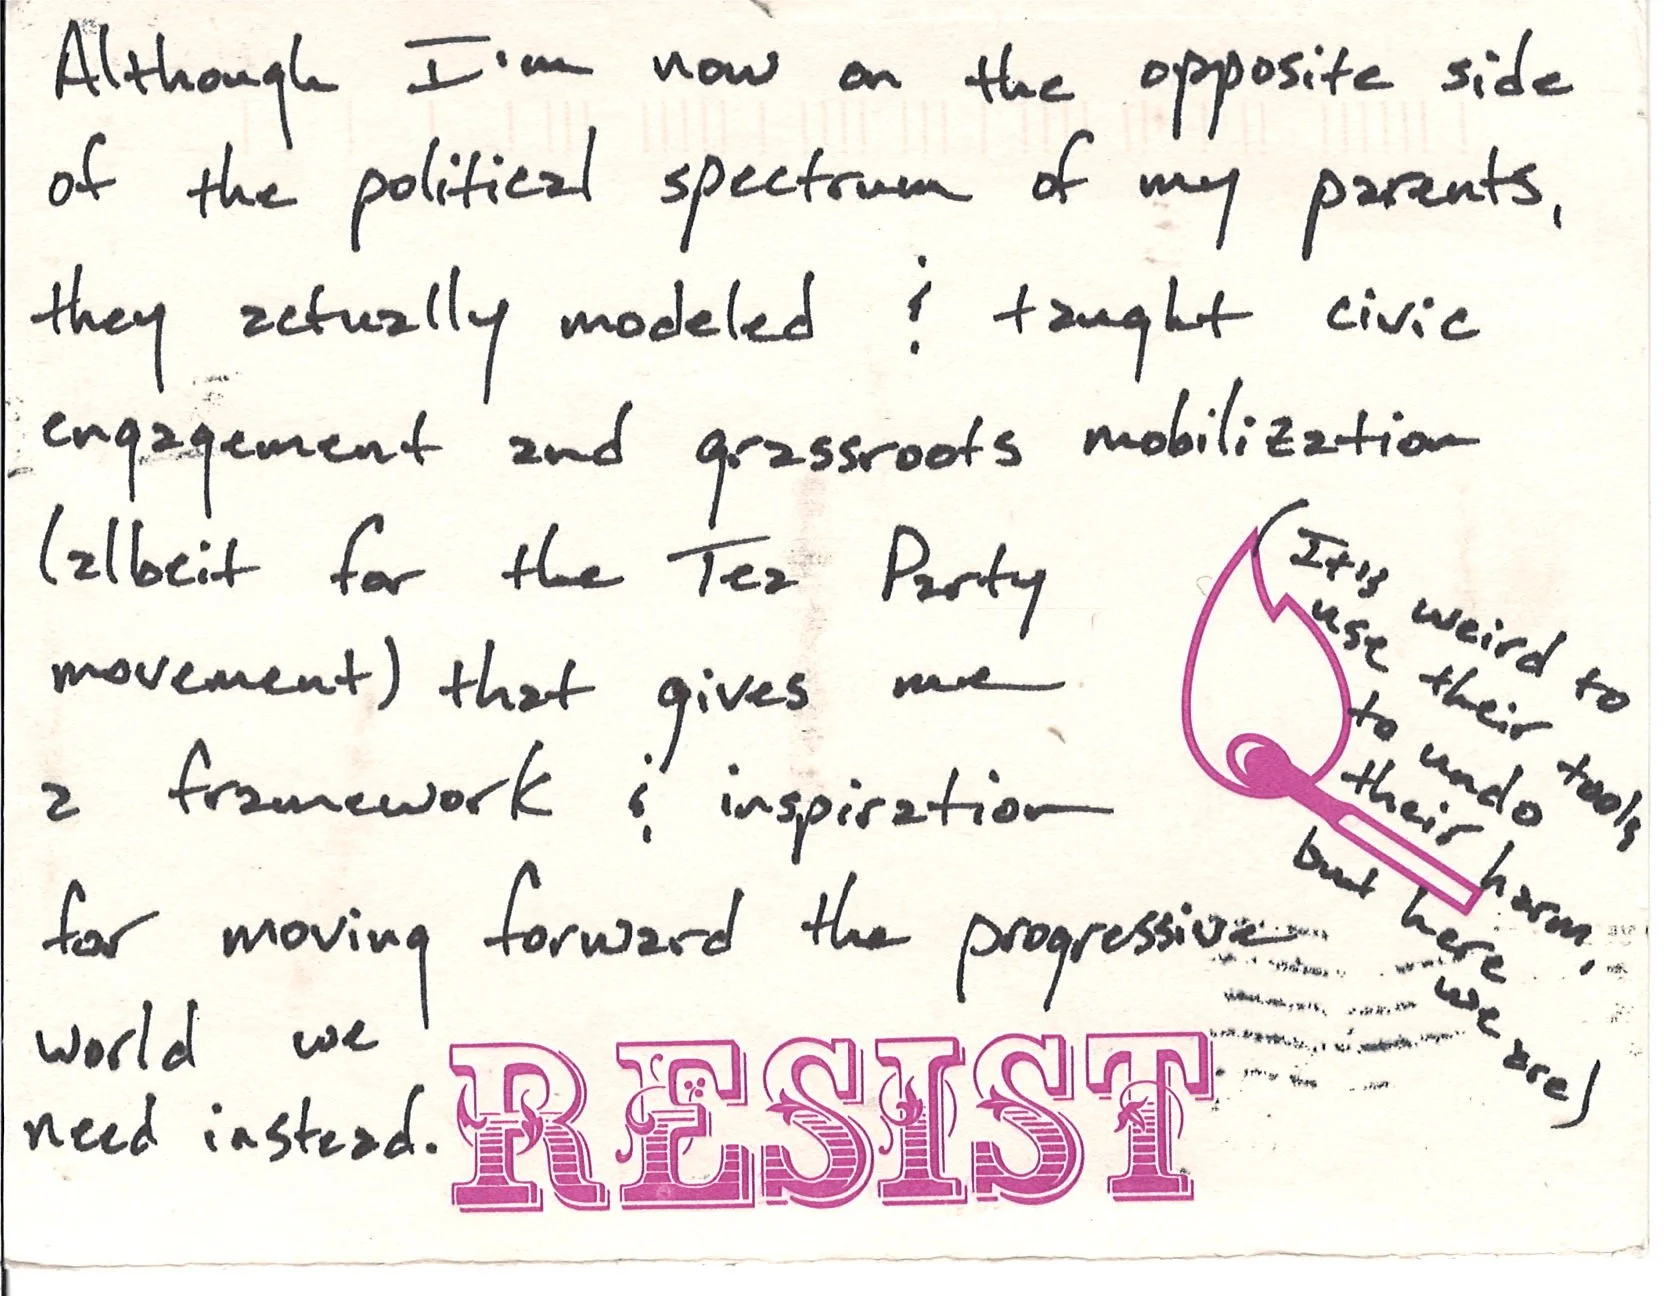 Although I'm now on the opposite side
of the political spectrum of my parents,
they actually modeled & taught civic
engagement and grassroots mobilization
(albeit for the Tea Party
movement) that gives me
a framework & inspiration
for moving forward the progressive
world we
need instead.
(It is weird to
use their tools
to undo
their harm,
but here
we are)
RESIST